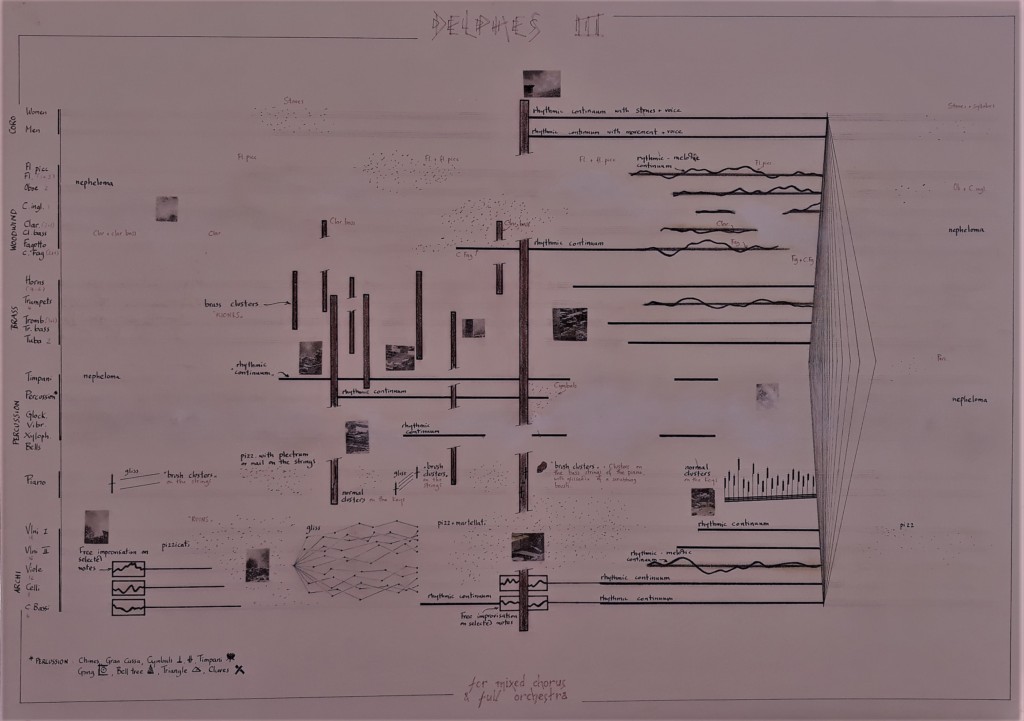 DELPHES III
CORO
Women
Men
WOODWIND
Fl. picc
Fl.
Oboe 2
C. ingl. 1
Clar.
Cl. bass
Fagotto
C. Fag
BRASS
Horns
Trumpets
Tromb.
Tr. bass
Tuba 2
PERCUSSION
Timpani
Percussion*
Glock
Vibr
Xyloph.
Bells
Piano
ARCHI
Vlni I
Vlni II
Viole
Celli
C. Bassi
Stones
rhythmic continuum with stones + voice
rhythmic continuum with movement + voice
Stones + syllables
nepheloma
Fl. picc
Fl. + Fl. picc
Fl. + Fl. picc
rhythmic - melodic
continuum
Fl. picc
Clar + clar bass
Clar
Clar. bass
Clar. bass
C. Fag
rhythmic continuum
Clar.
Fag
Fag + C. Fg
nepheloma
brass clusters
rhythmic
continuum
nepheloma
rhythmic continuum
Cymbals
rhythmic
continuum
Perc.
nepheloma
gliss
"brush clusters"
on the strings
pizz. with plectrum
or nail on the strings
normal
clusters on the keys
gliss
brush
clusters
on the
strings
brush clusters
normal
clusters
on the keys
Free improvisation on
selected
notes
pizzicati
gliss
pizz + martellati
rhythmic continuum
Free improvisation
on selected notes
rhythmic continuum
rhythmic - melodic
continuum
rhythmic continuum
rhythmic continuum
pizz
* PERCUSSION: Chimes, Gran Cassa, Cymbals, Timpani
Gong, Bell tree, Triangle, Claves
for mixed chorus
& full orchestra